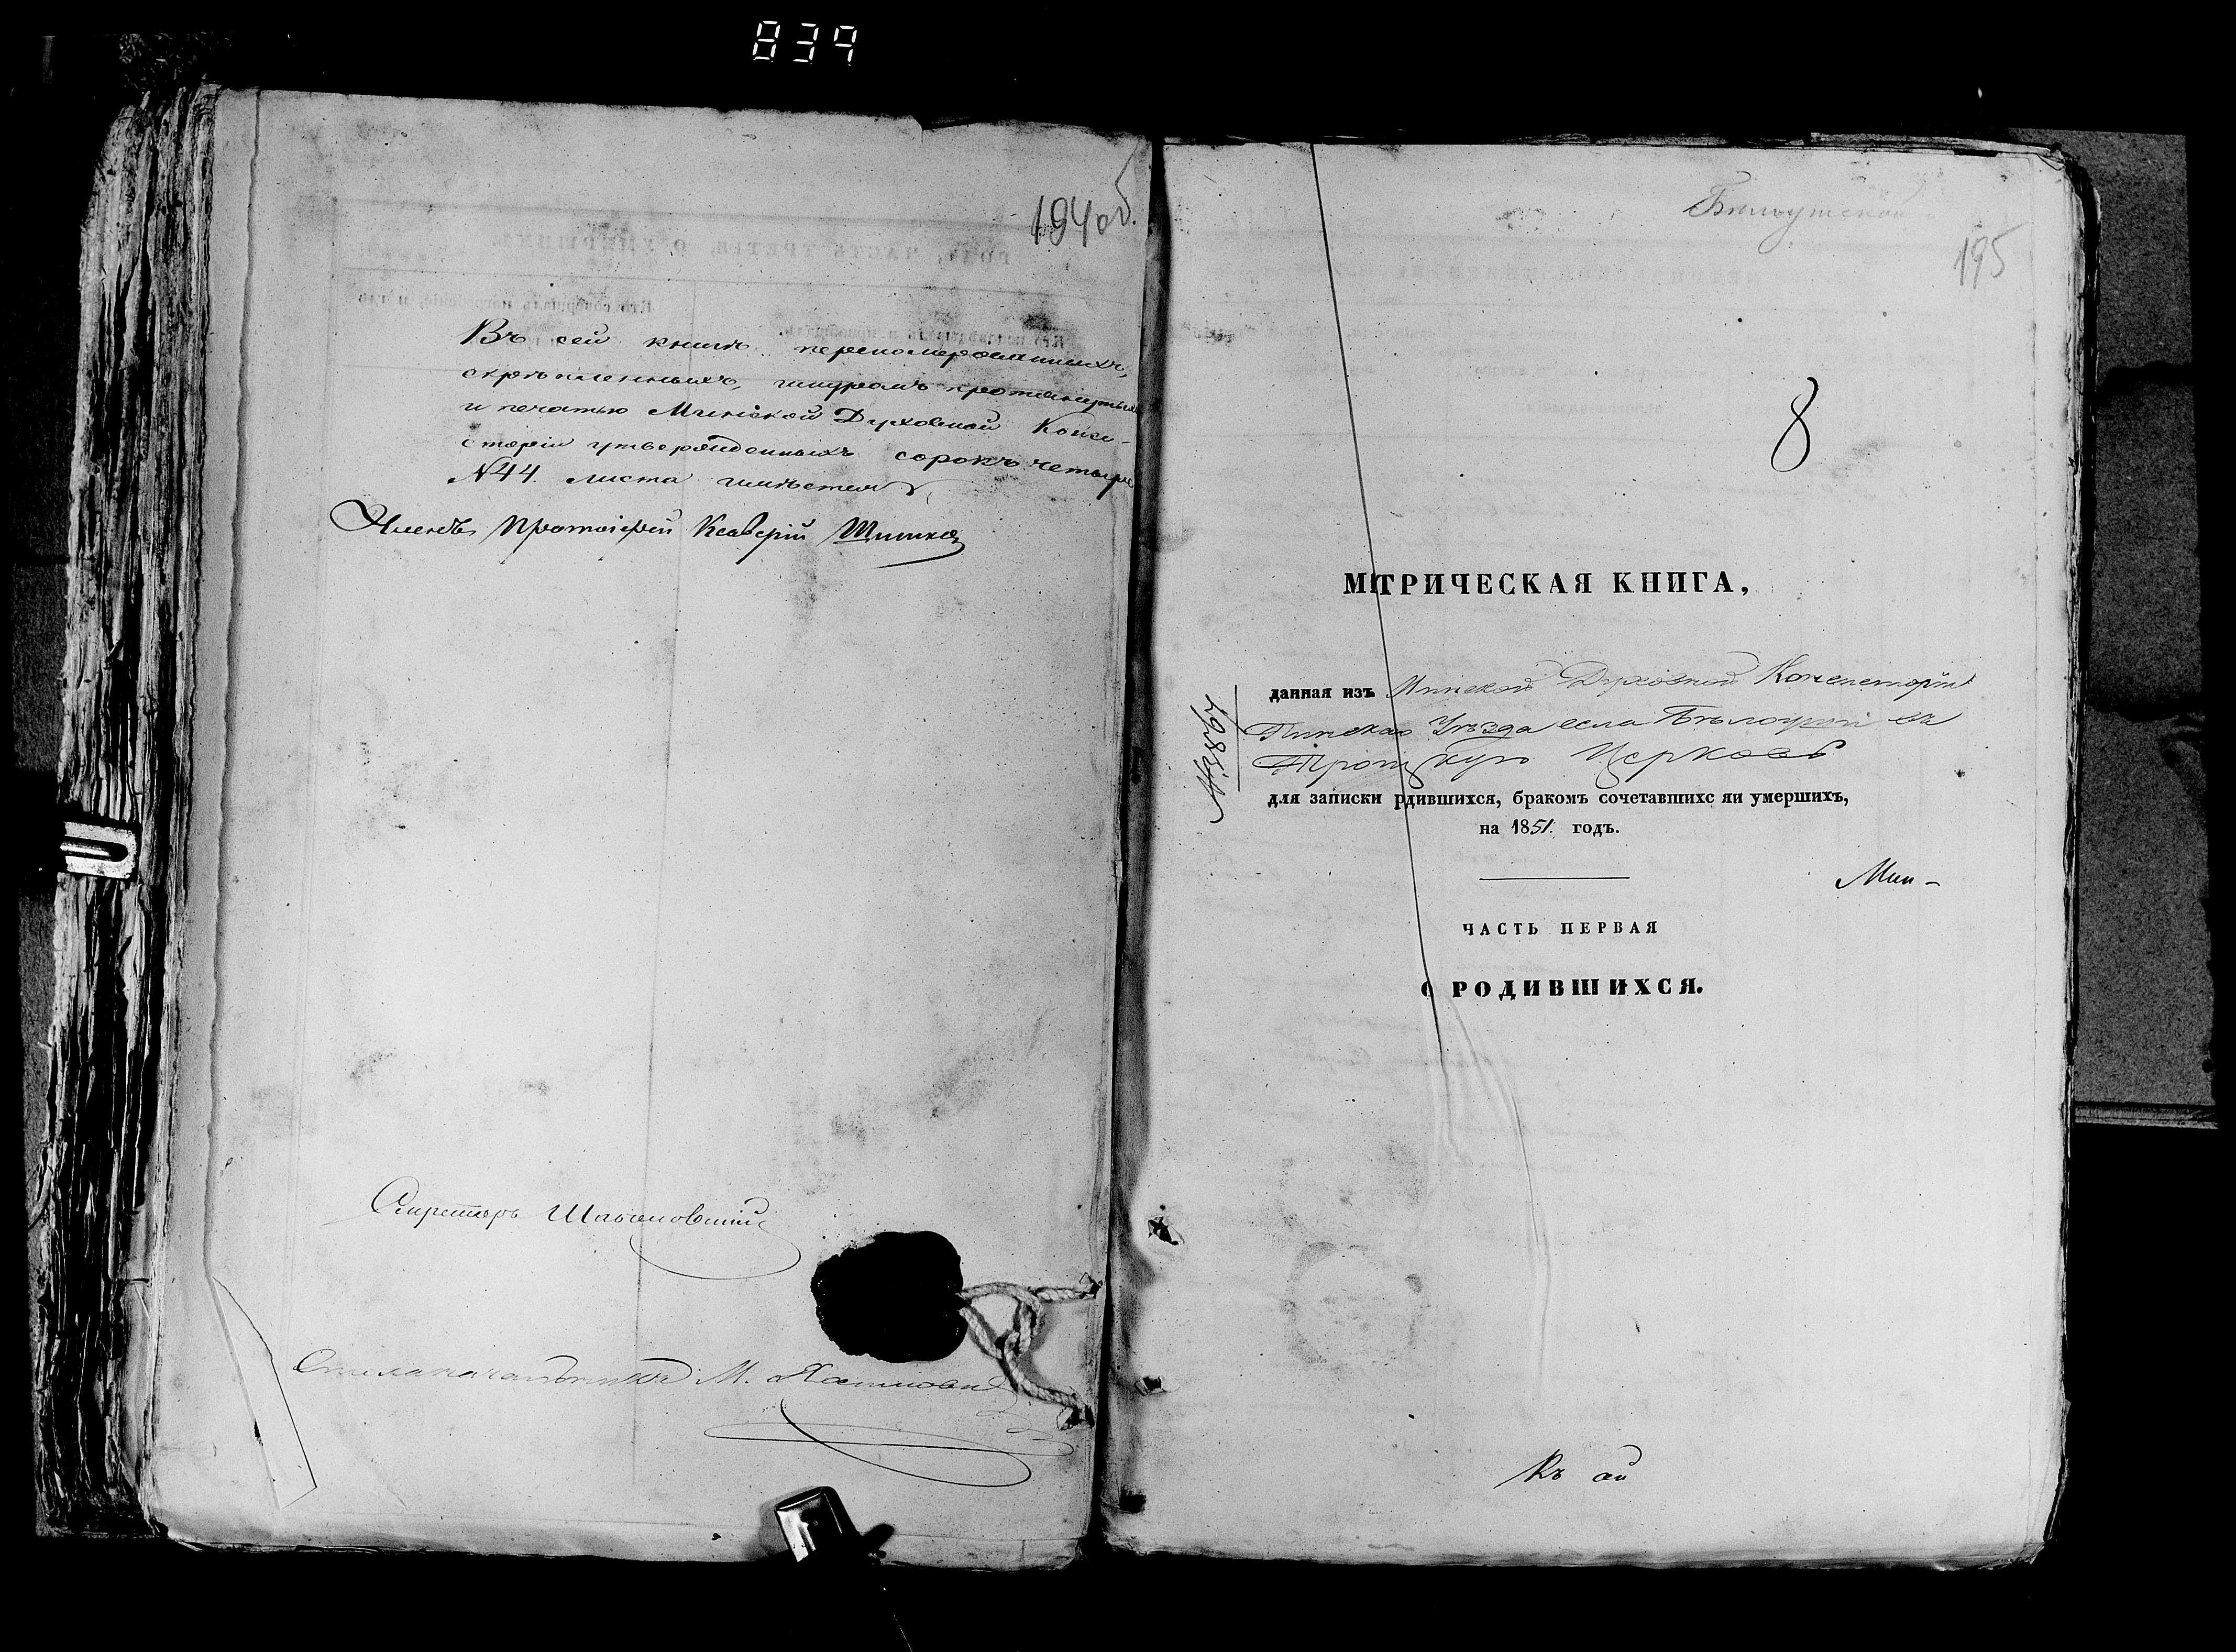 839
194 об.
Въ сей книгѣ перенумерованныхъ,
скрѣпленныхъ, шнуромъ протянутыхъ
и печатью Минской Духовной Конси-
сторіи утвержденныхъ сорокъ четыре
№ 44. листа имѣется
Членъ Протоіерей Ксаверій
Секретарь
Столоначальникъ М.
195
8
МТРИЧЕСКАЯ КНИГА,
данная изъ Минской Духовной Консисторіи
Пинскаго Уѣзда села въ
Троицкую Церковь
для записки рдившихся, бракомъ сочетавшихс яи умершихъ,
на 1851. годъ.
Мин-
ЧАСТЬ ПЕРВАЯ
О РОДИВШИХСЯ.